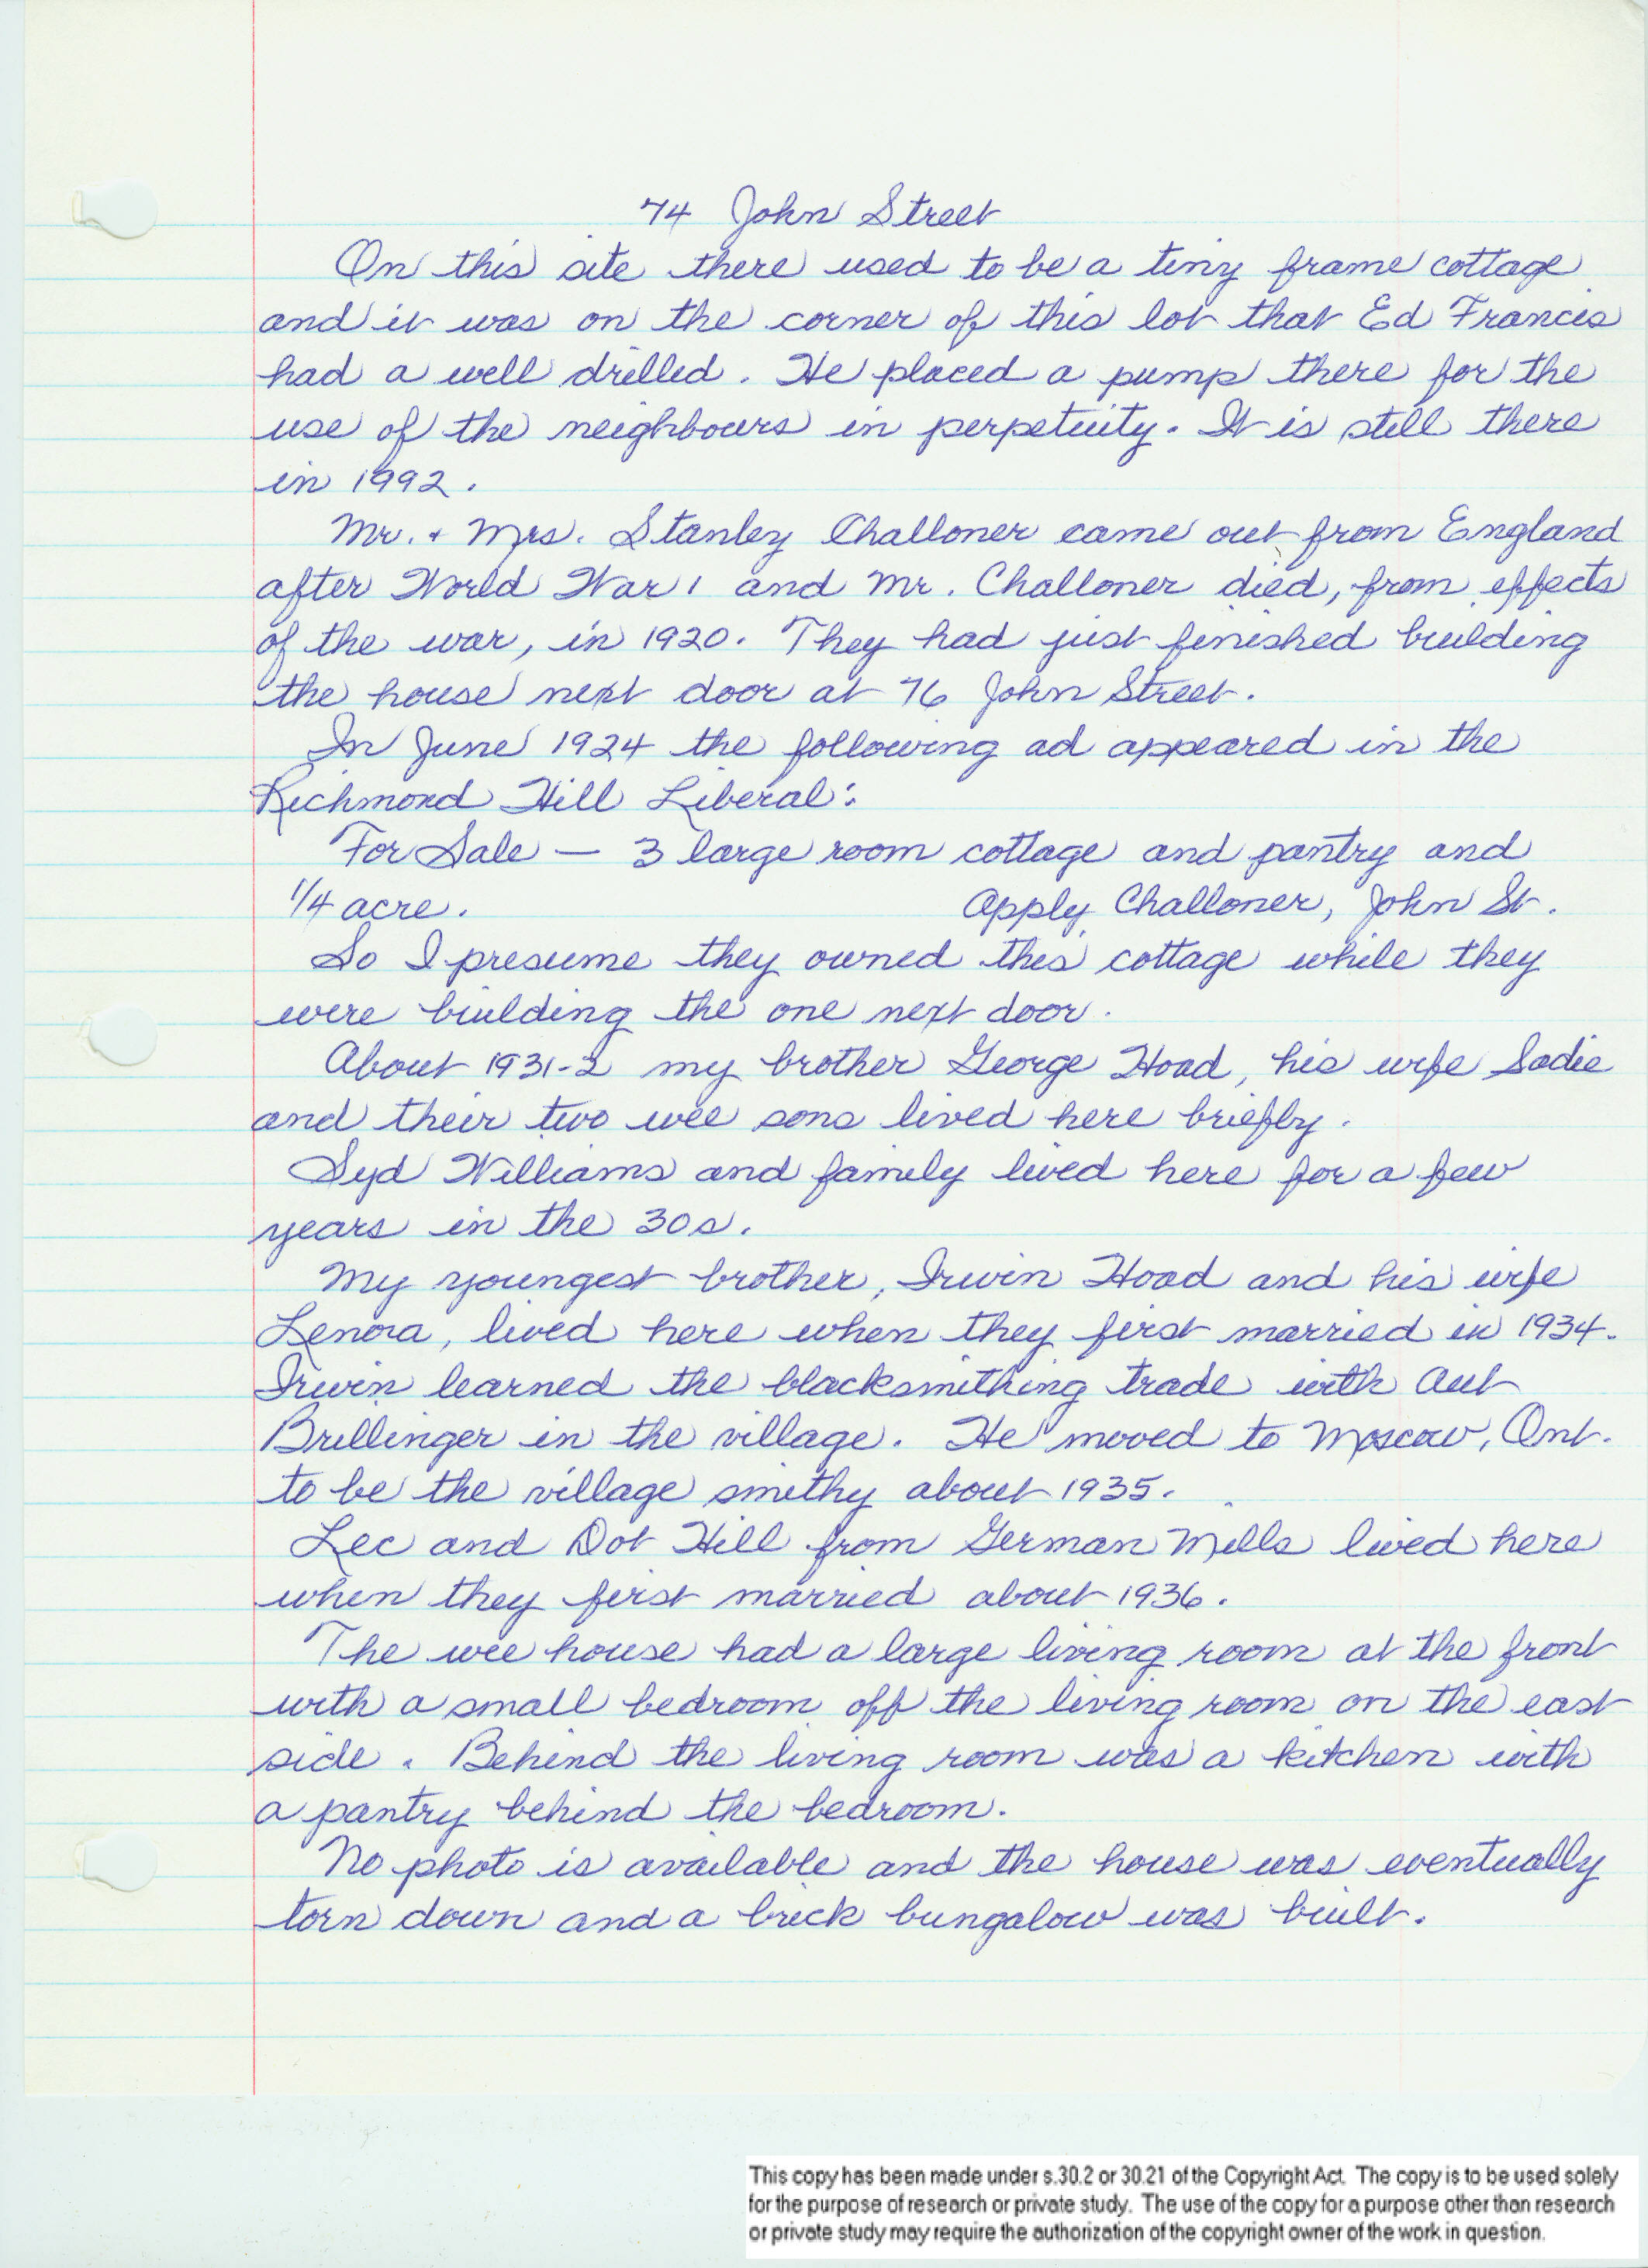 74 John Street
On this site there used to be a tiny frame cottage
and it was on the corner of this lot that Ed Francis
had a well drilled. He placed a pump there for the
use of the neighbours in perpetuity. It is still there
in 1992.
Mr. + Mrs. Stanley Challoner came out from England
after World War 1 and Mr. Challoner died, from effects
of the war, in 1920. They had just finished building
the house next door at 76 John Street.
In June 1924 the following ad appeared in the
Richmond Hill Liberal:
For Sale — 3 large room cottage and pantry and
1/4 acre. Apply Challoner, John St.
So I presume they owned this cottage while they
were building the one next door.
About 1931-2 my brother George Hoad, his wife Sadie
and their two wee sons lived here briefly.
Syd Williams and family lived here for a few
years in the 30s.
My youngest brother, Irwin Hoad and his wife
Lenora, lived here when they first married in 1934.
Irwin learned the blacksmithing trade with
Brillinger in the village. He moved to Moscow, Ont.
to be the village smithy about 1935.
Lec and Dot Hill from German Mills lived here
when they first married about 1936.
The wee house had a large living room at the front
with a small bedroom off the living room on the east
side. Behind the living room was a kitchen with
a pantry behind the bedroom.
No photo is available and the house was eventually
torn down and a brick bungalow was built.
This copy has been made under s.30.2 or 30.21 of the Copyright Act. The copy is to be used solely
for the purpose of research or private study. The use of the copy for a purpose other than research
or private study may require the authorization of the copyright owner of the work in question.